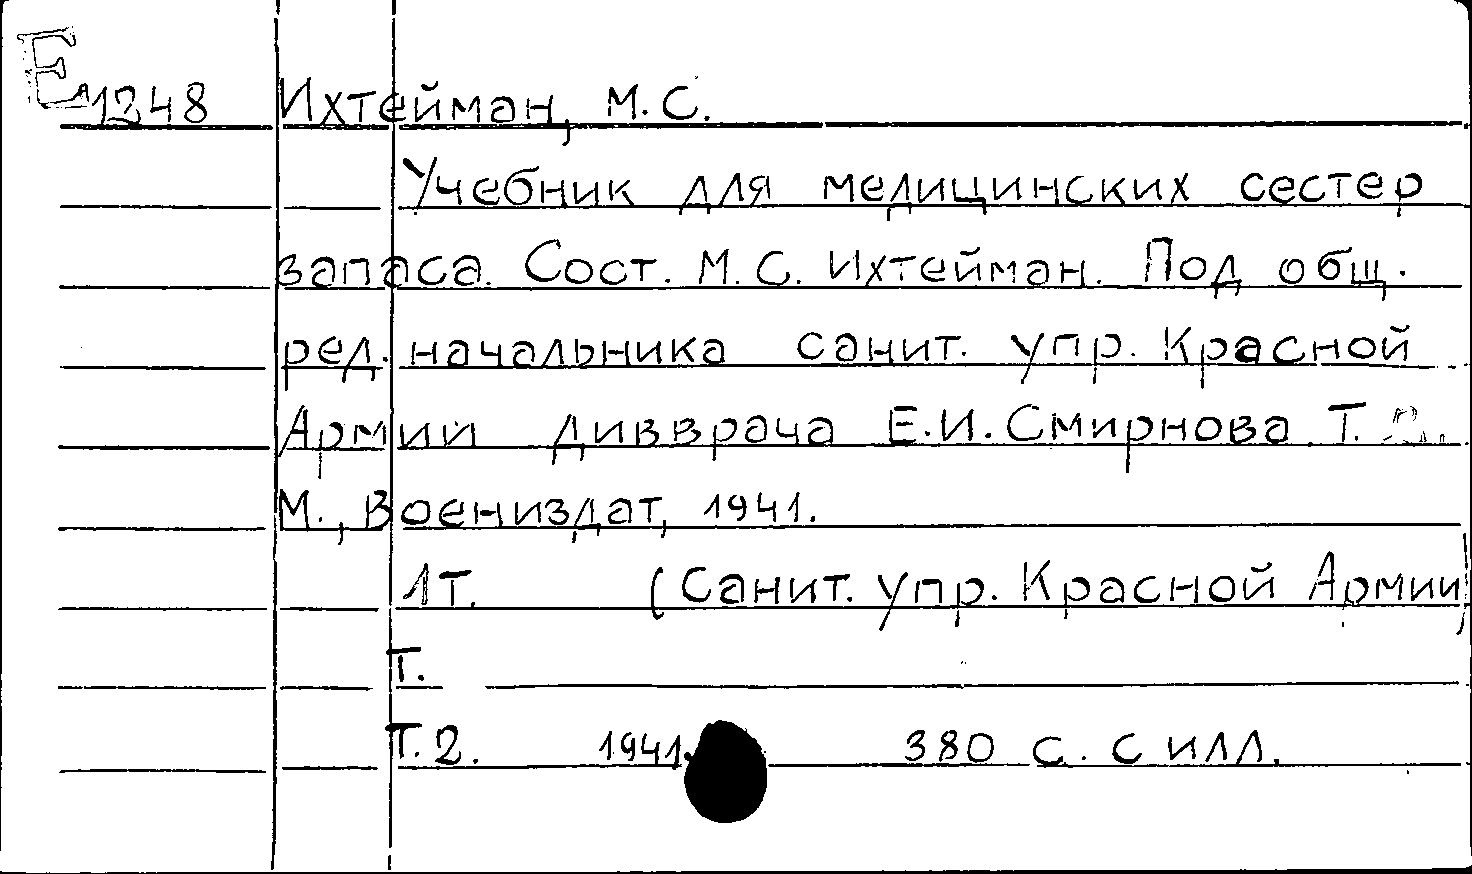 Е 1248 Ихтейман, М. С.
Учебник для медицинских сестер
запаса. Сост. М. С. Ихтейман. Под общ.
ред. начальника санит. упр. Красной
Армии дивврача Е. И. Смирнова. Т. 2.
М., Воениздат, 1941.
1 т. (Санит. упр. Красной Армии)
Т.
Т. 2. 1941. 380 с. с илл.